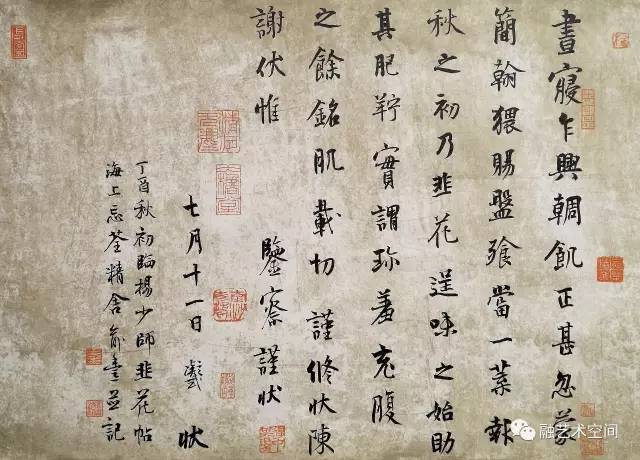 晝寢乍興輖飢正甚忽蒙
簡翰猥賜盤飱當一葉報
秋之初乃韭花逞味之始助
其肥羜實謂珍羞充腹
之餘銘肌載切謹脩狀陳
謝伏惟 鑒察謹狀
七月十一日 凝式 狀
丁酉秋初臨楊少師韭花帖
海上忘荃精舍俞豐並記
融艺术空间